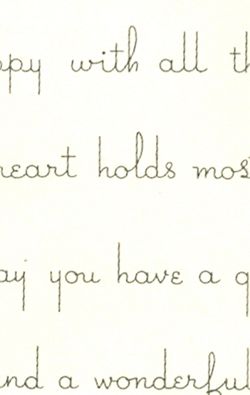 ppy with all th
heart holds mos
ay you have a g
and a wonderful